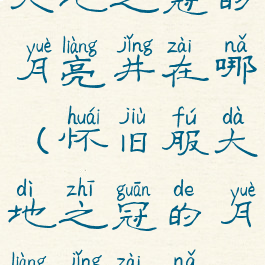 天地之冠的
yuè liàng jǐng zài nǎ
月亮井在哪
huái jiù fú dà
(怀旧服大
dì zhī guān de yuè
地之冠的月
liàng jǐng zài nǎ